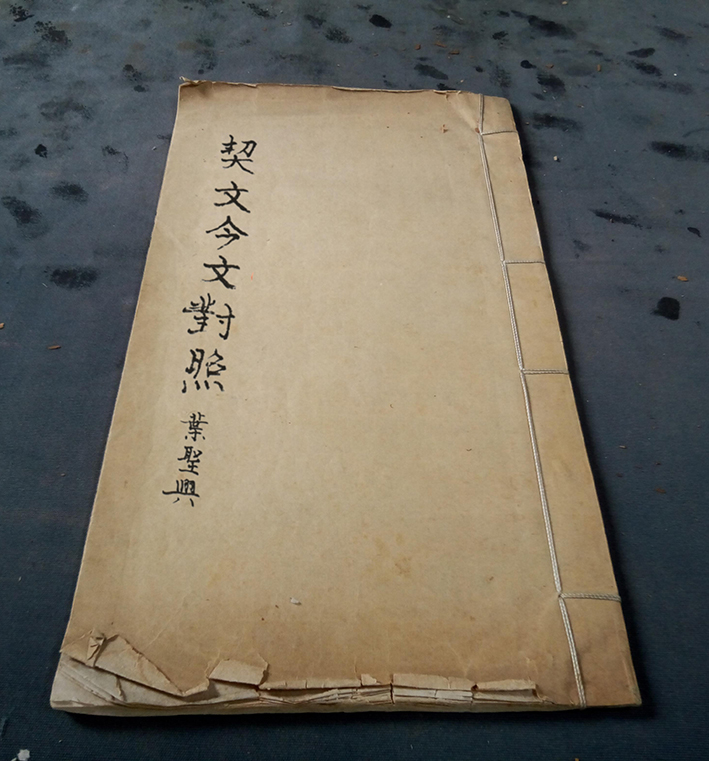 契文今文對照
葉聖興